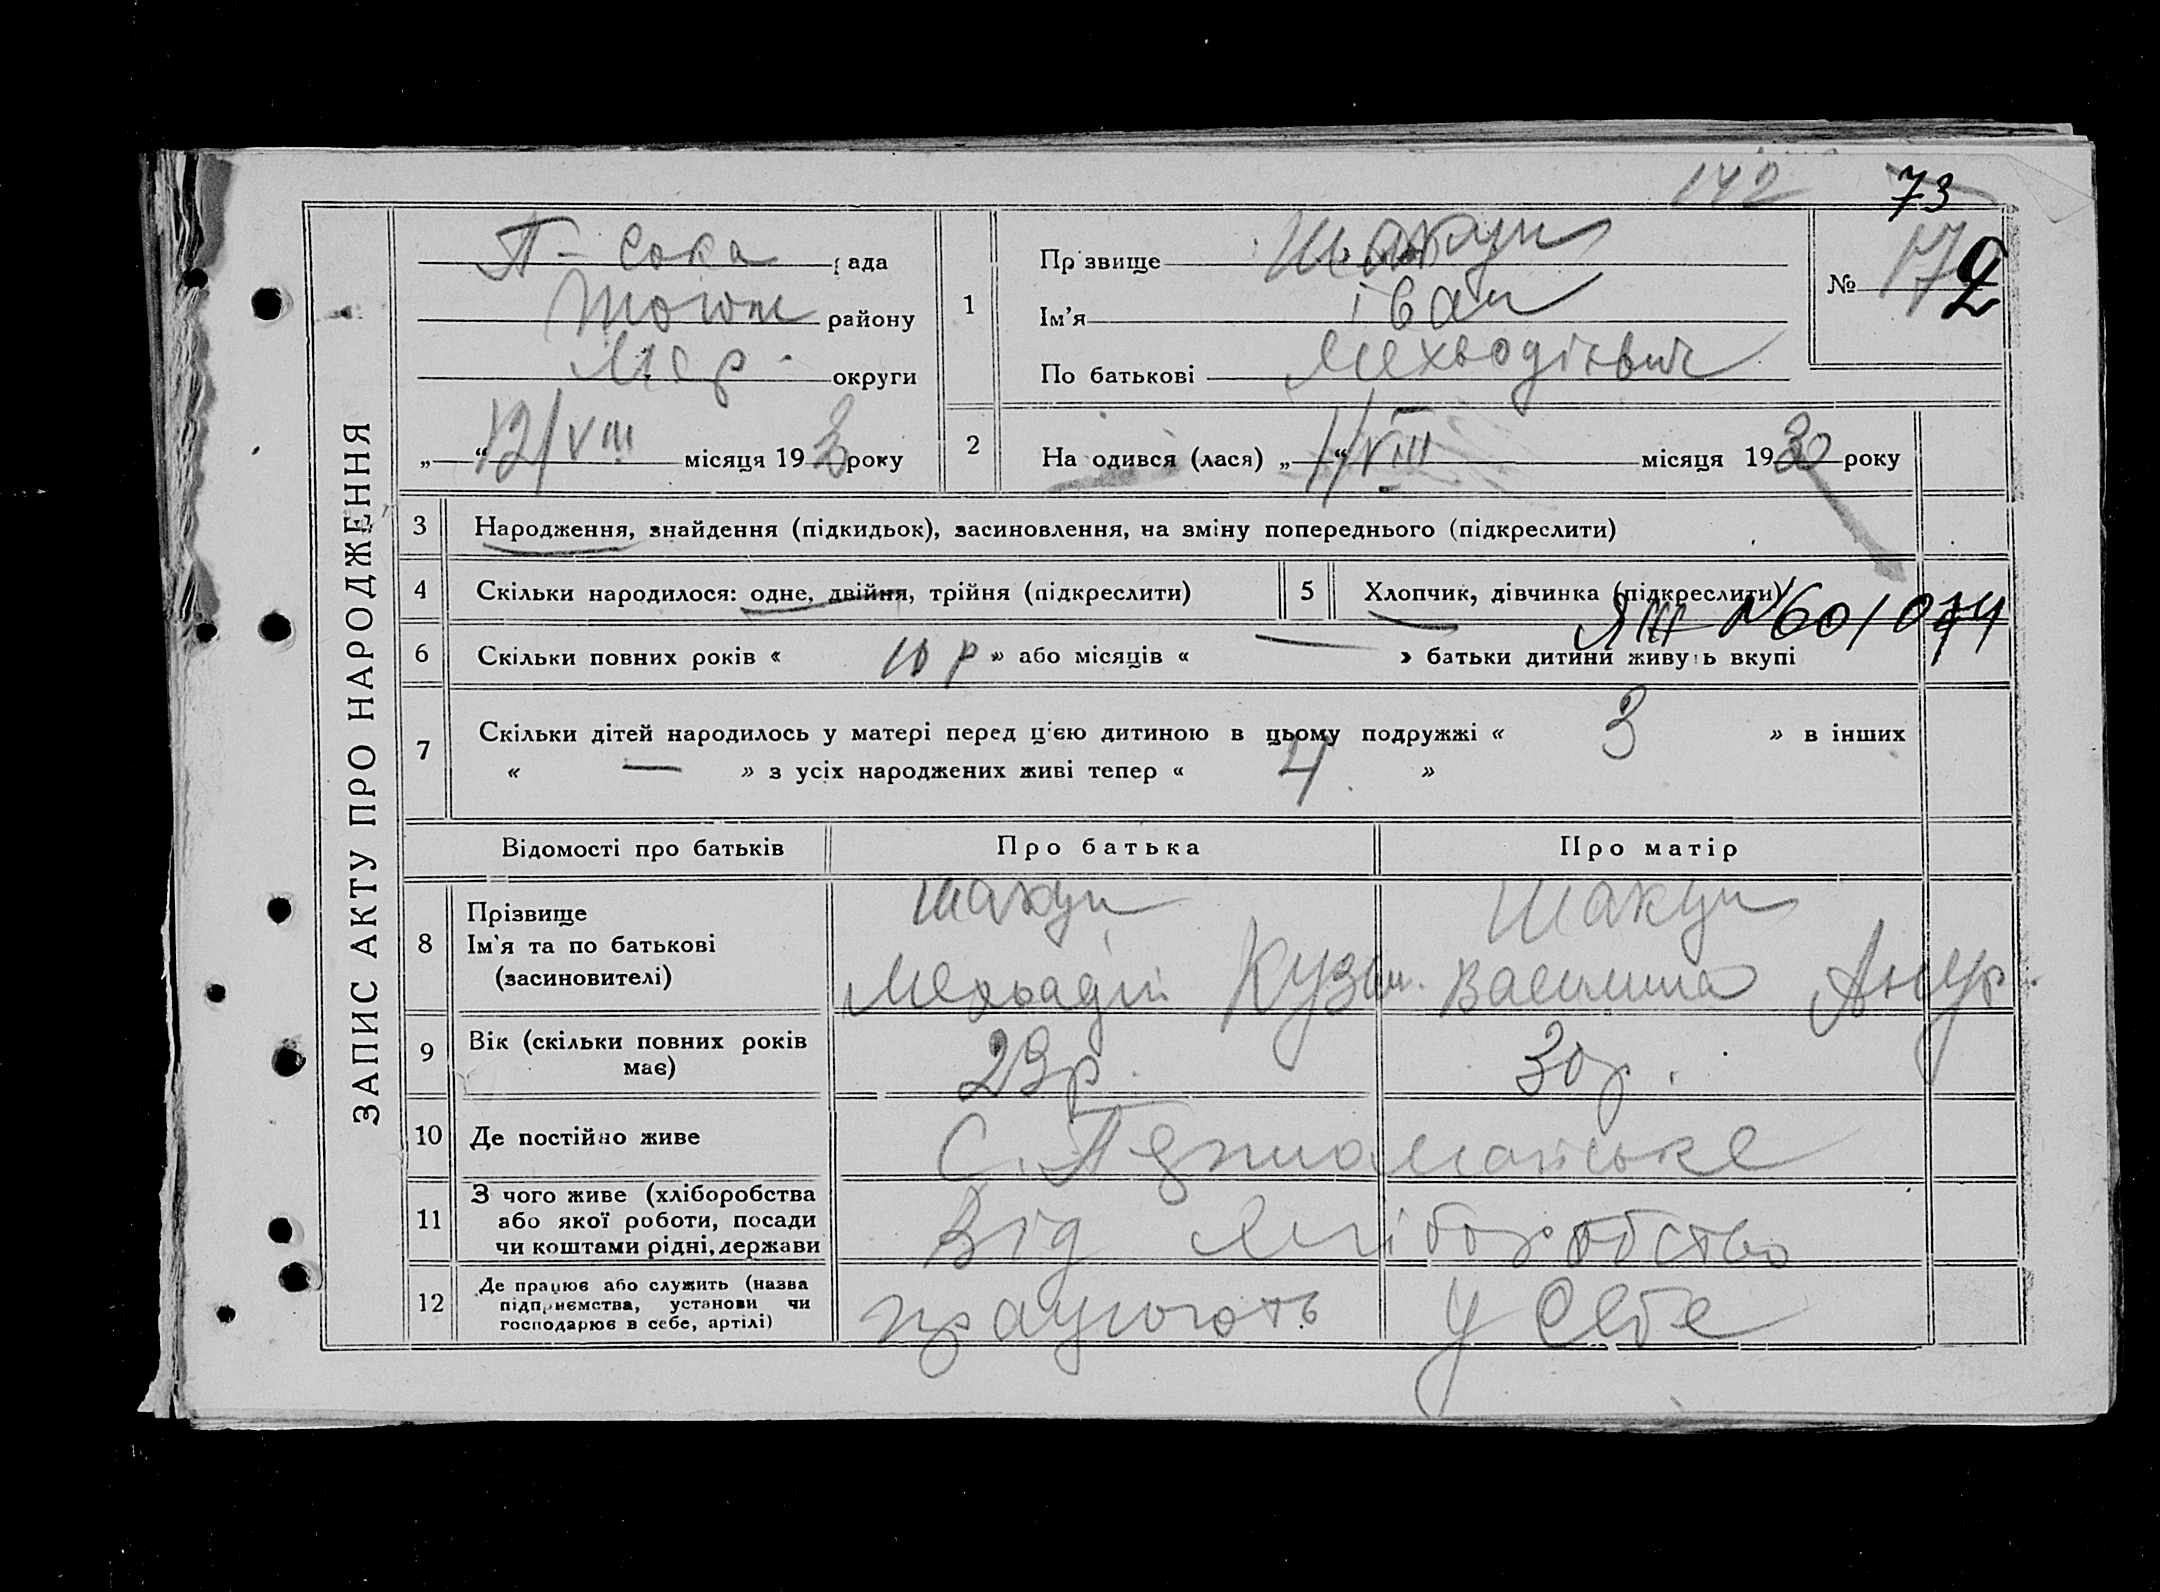 142 73
ЗАПИС АКТУ ПРО НАРОДЖЕННЯ
П- сока рада
району
Мар. округи
„ “ 12/VIII місяця 193 року
1
Прізвище Шакун
Ім'я Іван
По батькові Мехводієвич
№ 172
2 На одився (лася) „ “ 1/VIII місяця 1930 року
3 Народження, знайдення (підкидьок), засиновлення, на зміну попереднього (підкреслити)
4 Скільки народилося: одне, двійня, трійня (підкреслити)
5 Хлопчик, дівчинка (підкреслити)
ЯШ №601074
6 Скільки повних років « 10 р » або місяців « — » батьки дитини живуть вкупі
7 Скільки дітей народилось у матері перед цією дитиною в цьому подружжі « 3 » в інших
« — » з усіх народжених живі тепер « 4 »
Відомості про батьків Про батька Про матір
8 Прізвище
Ім'я та по батькові
(засиновителі)
Шакун
Мехводій Кузм.
Шакун
Василина
9 Вік (скільки повних років
має)
29 р. 30 р.
10 Де постійно живе
С.
11 З чого живе (хліборобства
або якої роботи, посади
чи коштами рідні, держави
Від хліборобство
12 Де працює або служить (назва
підприємства, установи чи
господарює в себе, артілі)
працюють у себе